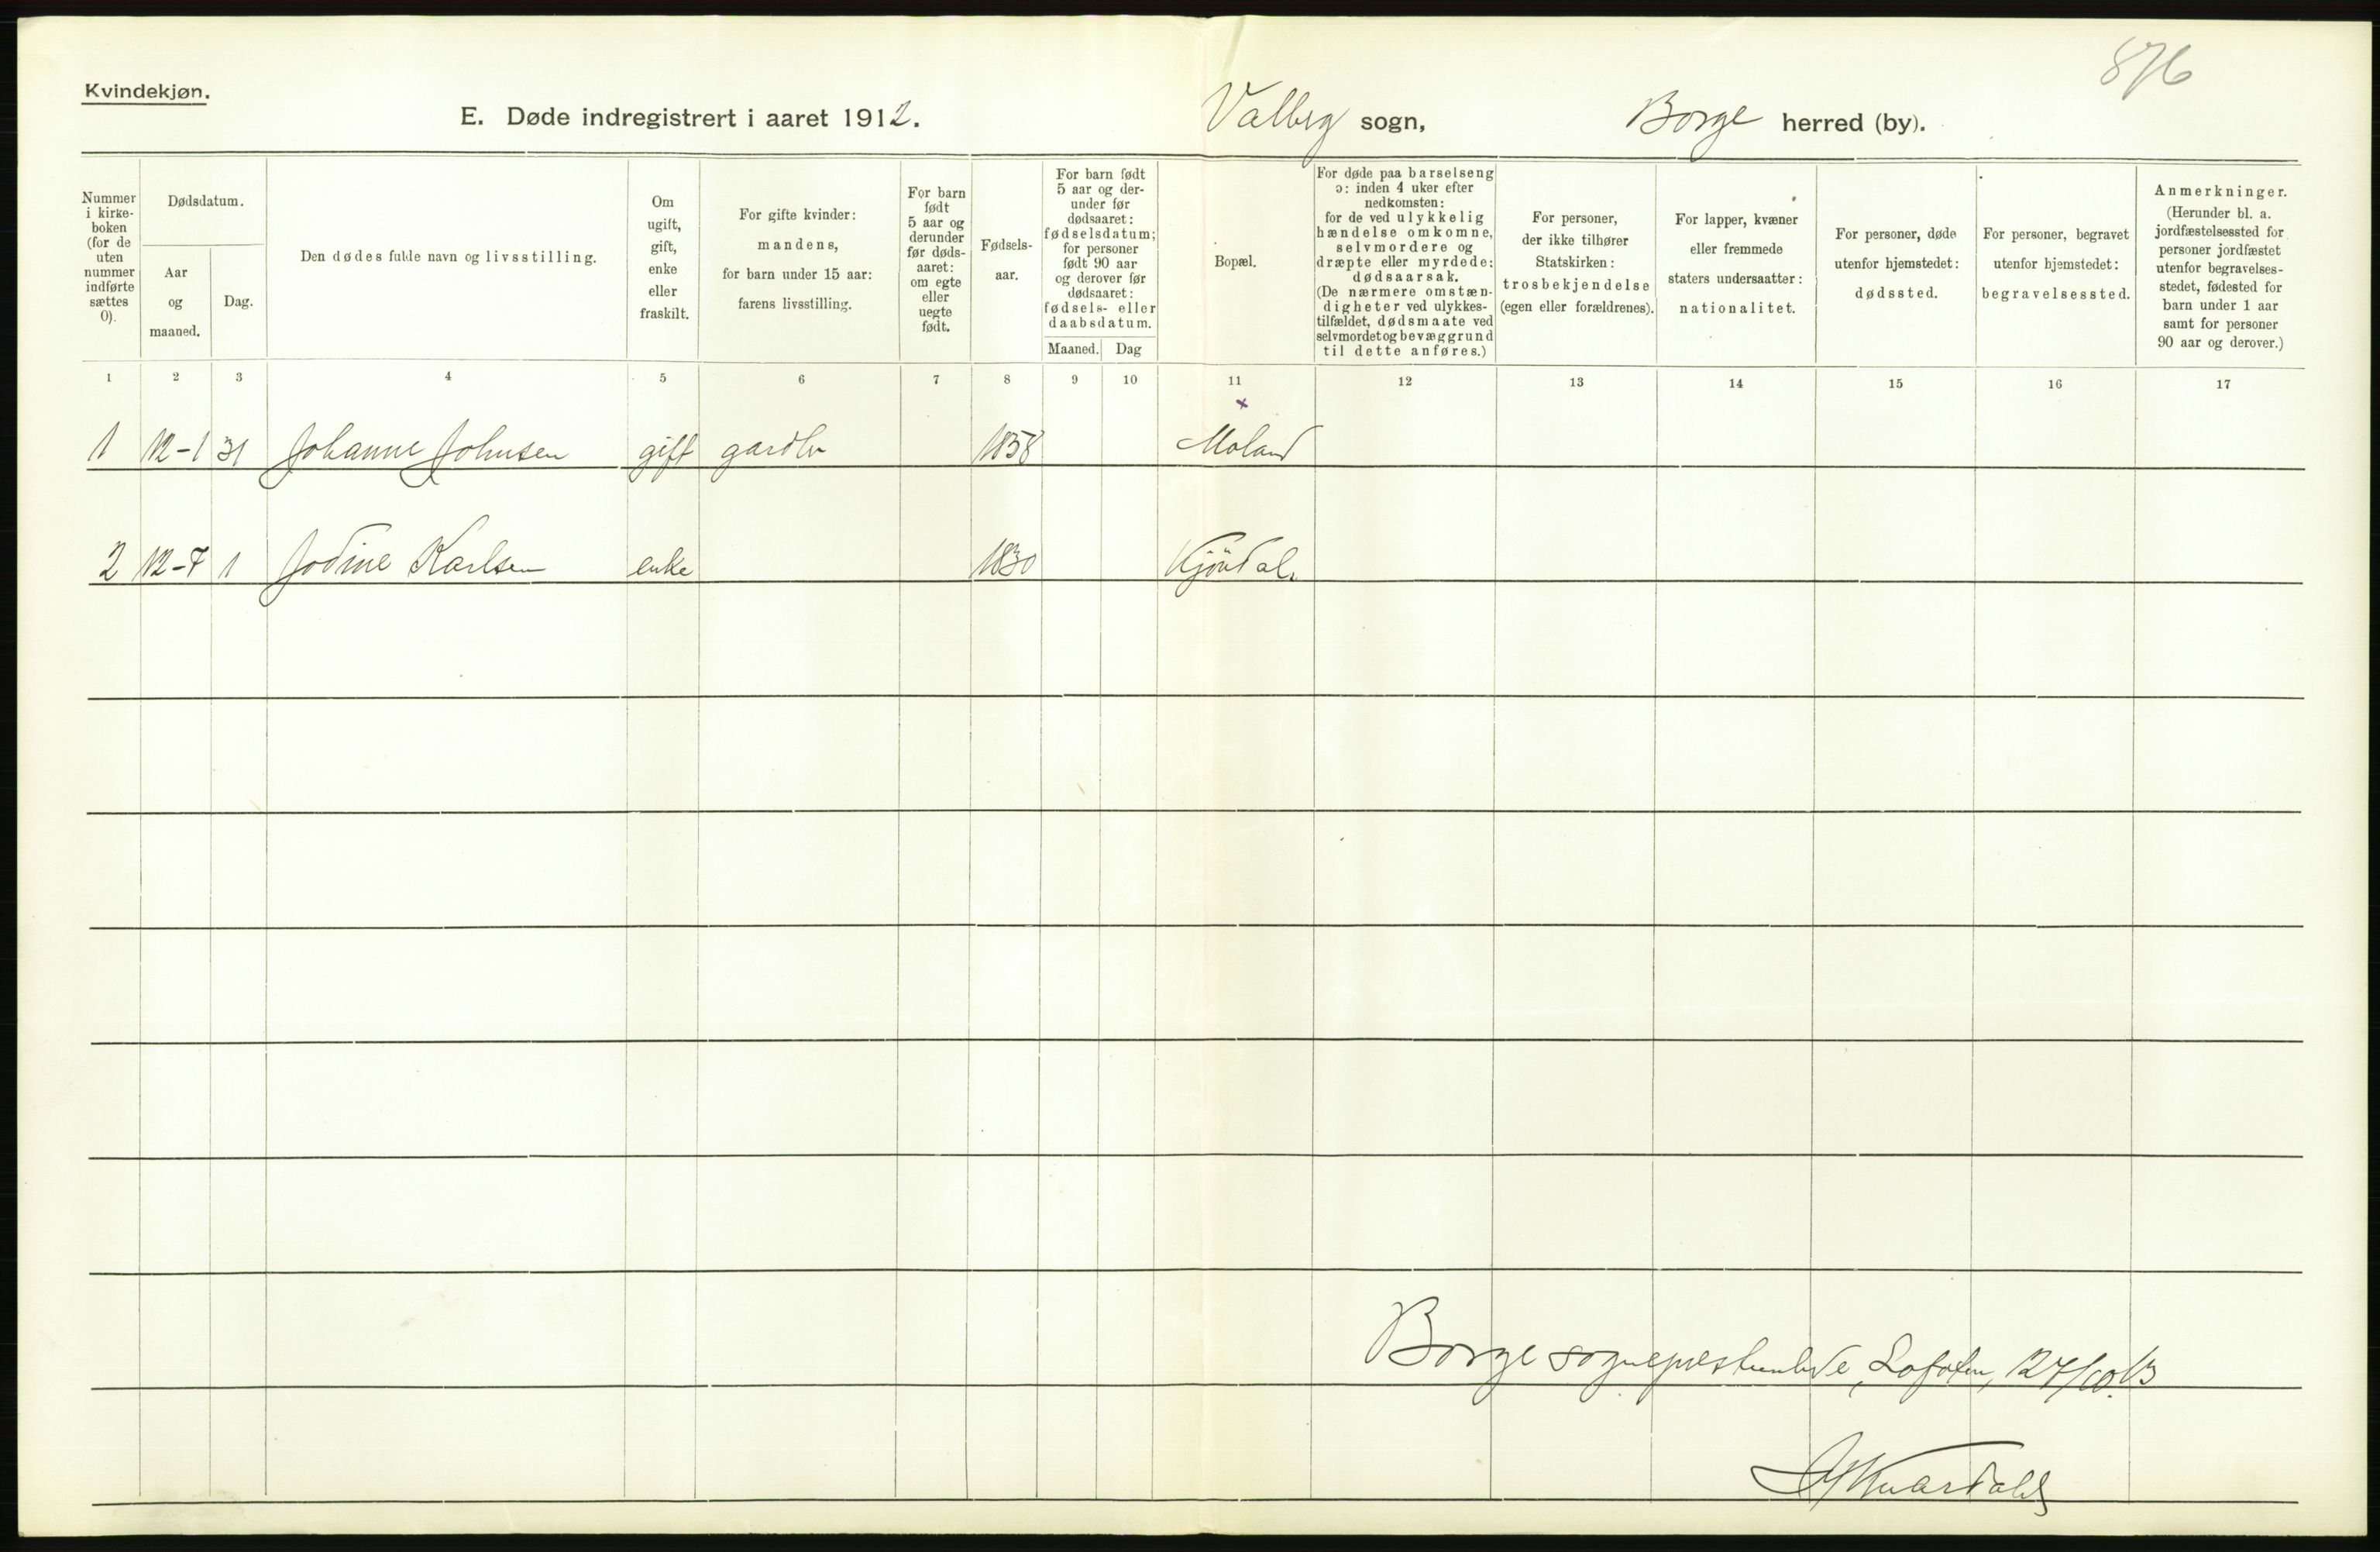 876
Kvindekjøn.
E. Døde indregistrert i aaret 1912. Valberg sogn, Borge herred (by).
Nummer
i kirke-
boken
(for de
uten
nummer
indførte
sættes
0).
Dødsdatum.
Aar
og
maaned.
Dag.
Den dødes fulde navn og livsstilling.
Om
ugift,
gift,
enke
eller
fraskilt.
For gifte kvinder:
mandens,
for barn under 15 aar:
farens livsstilling.
For barn
født
5 aar og
derunder
før døds-
aaret:
om egte
eller
uegte
født.
Fødsels-
aar.
For barn født
5 aar og der-
under før
dødsaaret:
fødselsdatum;
for personer
født 90 aar
og derover før
dødsaaret:
fødsels- eller
daabsdatum.
Maaned. Dag
Bopæl.
For døde paa barselseng
ɔ: inden 4 uker efter
nedkomsten:
for de ved ulykkelig
hændelse omkomne,
selvmordere og
dræpte eller myrdede:
dødsaarsak.
(De nærmere omstæn-
digheter ved ulykkes-
tilfældet, dødsmaate ved
selvmordet og bevæggrund
til dette anføres.)
For personer,
der ikke tilhører
Statskirken:
trosbekjendelse
(egen eller forældrenes).
For lapper, kvæner
eller fremmede
staters undersaatter:
nationalitet.
For personer, døde
utenfor hjemstedet:
dødssted.
For personer, begravet
utenfor hjemstedet:
begravelsessted.
Anmerkninger.
(Herunder bl. a.
jordfæstelsessted for
personer jordfæstet
utenfor begravelses-
stedet, fødested for
barn under 1 aar
samt for personer
90 aar og derover.)
1 2 3 4 5 6 7 8 9 10 11 12 13 14 15 16 17
1 12-1 31 Johanne Johnsen gift gardbr 1858 Moland
2 12-7 1 Jodine Karlsen enke 1830 Kjöndal.
Borge sogneprestembede, Lofoten, 27/10.13